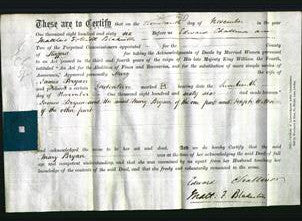 These are to Certify that on the Nineteenth day of November in the year
One thousand eight hundred and sixty six Before us Edward Challenor and
Two of the Perpetual Commissioners appointed for the
for taking the Acknowledgments of Deeds by Married Women pursuant to
an Act passed in the third and fourth years of the reign of His late Majesty King William the Fourth,
intituled "An Act for the Abolition of Fines and Recoveries, and for the substitution of more simple modes of
Assurance," Appeared personally Mary the wife of
James Bryan
and produced a certain Indenture marked bearing date the Nineteenth
day of November One thousand eight hundred and sixty six and made between
James Bryan and the said Mary Bryan of the one part and Joseph
of the other part
and acknowledged the same to be her act and deed. And
Mary Bryan was at the time of her acknowledging the said Deed of full
age and competent understanding, and that she was examined by us apart from her Husband touching her
knowledge of the contents of the said Deed, and that she freely and voluntarily consented to the same.
Edward Challenor